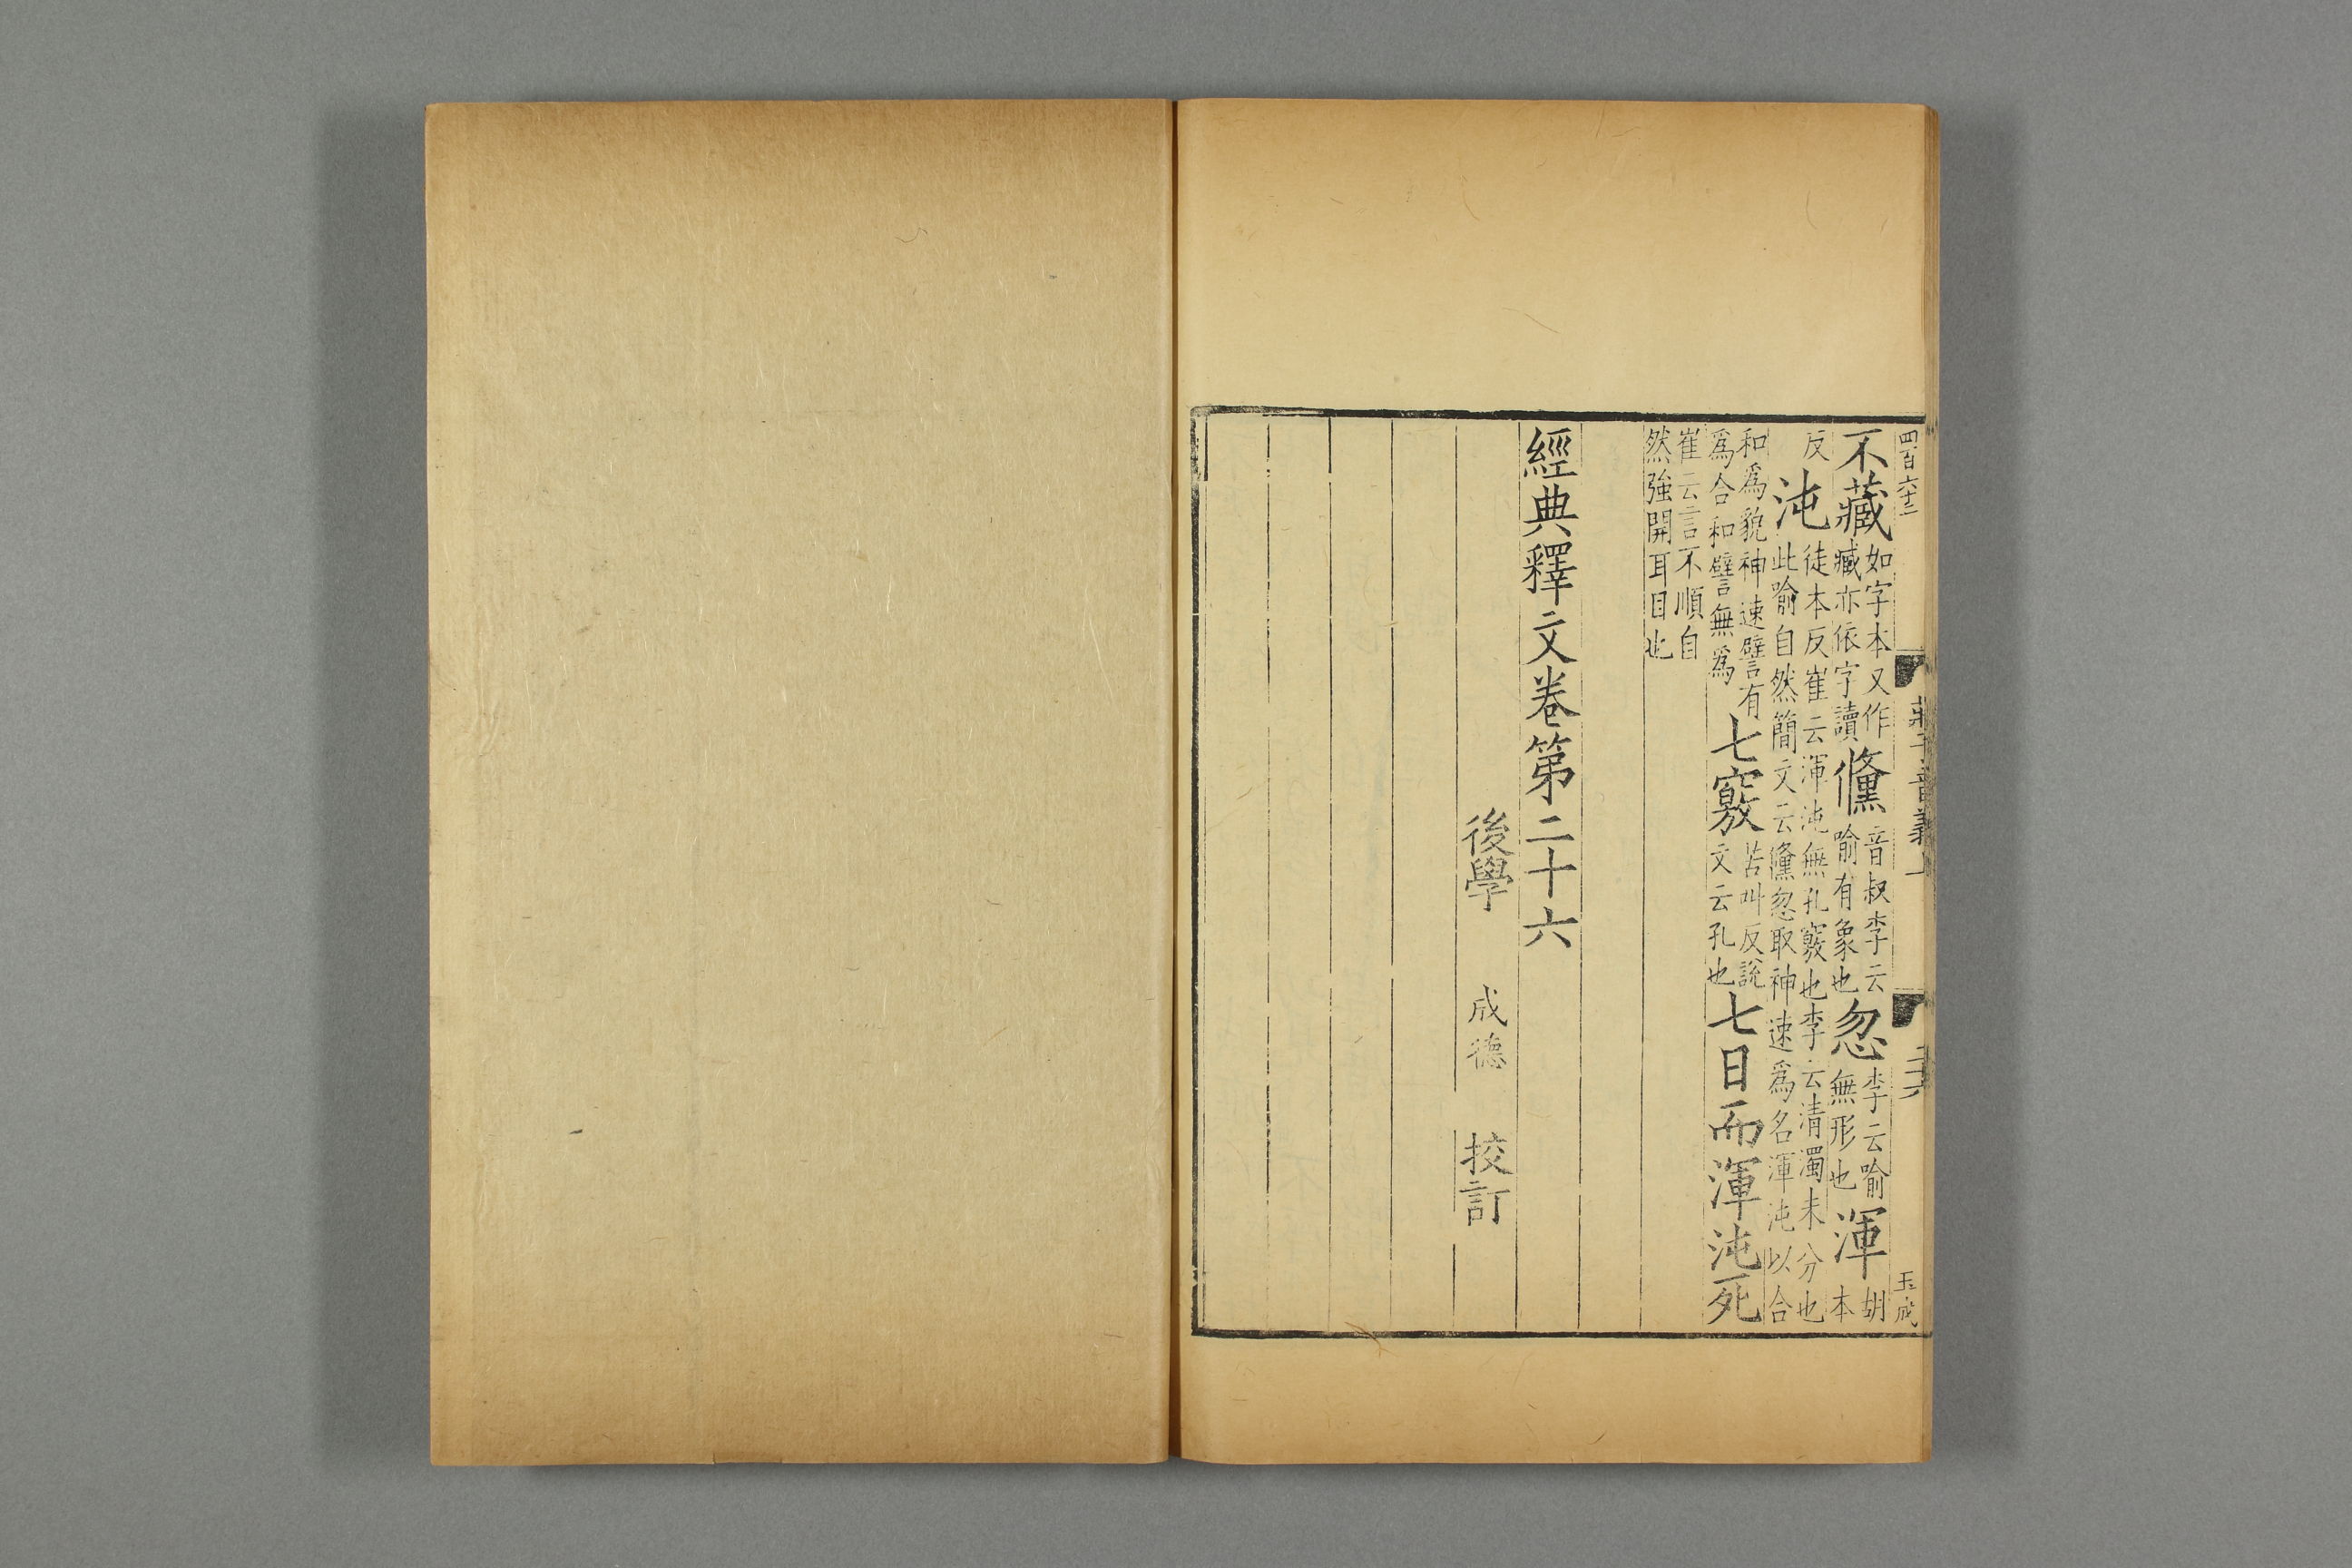 四百六十三
莊子音義上
玉成
不藏如字本又作臧亦依字讀儵音叔李云喻有象也忽李云喻無形也渾胡本
反沌徒本反崔云渾沌無孔竅也李云清濁未分也此喻自然簡文云儵忽取神速爲名渾沌以合
和爲貌神速譬有爲合和譬無爲七竅苦叫反說文云孔也七日而渾沌死
崔云言不順自然強開耳目也
經典釋文卷第二十六
後學 成德 校訂